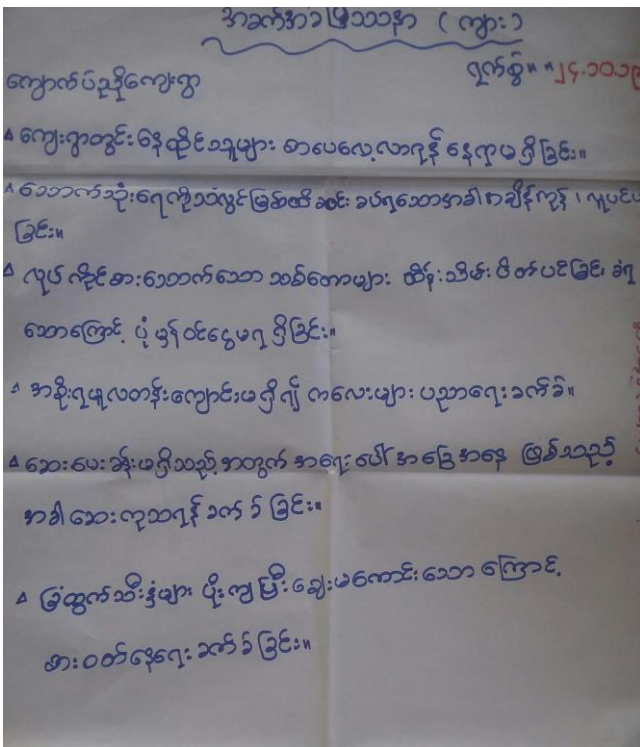 အခက်အခဲပြဿနာ (ကျား)
ရက်စွဲ။ ။၂၄.၁၀.၁၉
ကျောက်ပဲညိုကျေးရွာ
∆ ကျေးရွာတွင်းနေထိုင်သူများ စာပေလေ့လာရန် နေရာမရှိခြင်း။
∆ သောက်သုံးရေကိုသံလွင်မြစ်ထိဆင်း ခပ်ရသောအခါအချိန်ကုန်၊ လူပင်ပ
ခြင်း။
∆ လုပ်ကိုင်စားသောက်သော သစ်တောများ ထိန်းသိမ်းပိတ်ပင်ခြင်း ခံရ
သောကြောင့် ပုံမှန်ဝင်ငွေမရရှိခြင်း။
∆ အစိုးရမူလတန်းကျောင်းမရှိ၍ ကလေးများ ပညာရေးခက်ခဲ။
∆ ဆေးပေးခန်းမရှိသည့်အတွက် အရေးပေါ်အခြေအနေ ဖြစ်သည့်
အခါဆေးကုသရန် ခက်ခဲခြင်း။
∆ ခြံထွက်သီးနှံများ ပိုးကျပြီးဈေးမကောင်းသောကြောင့်
စားဝတ်နေရေးခက်ခဲခြင်း။